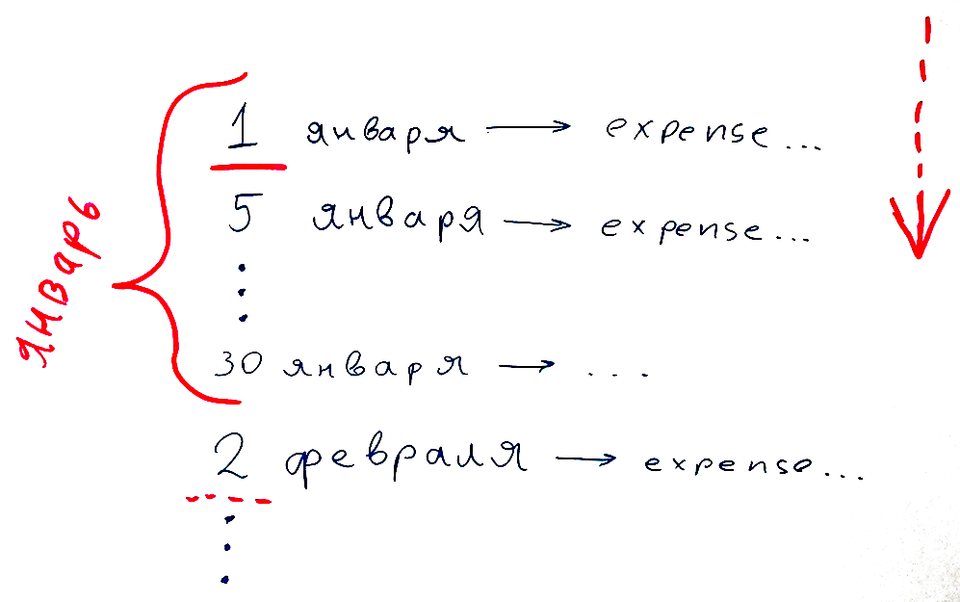 январь
1 января → expense...
5 января → expense...
30 января → ...
2 февраля → expense...